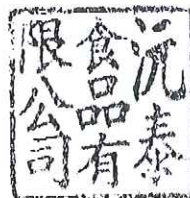 沅泰
食品有
限公司